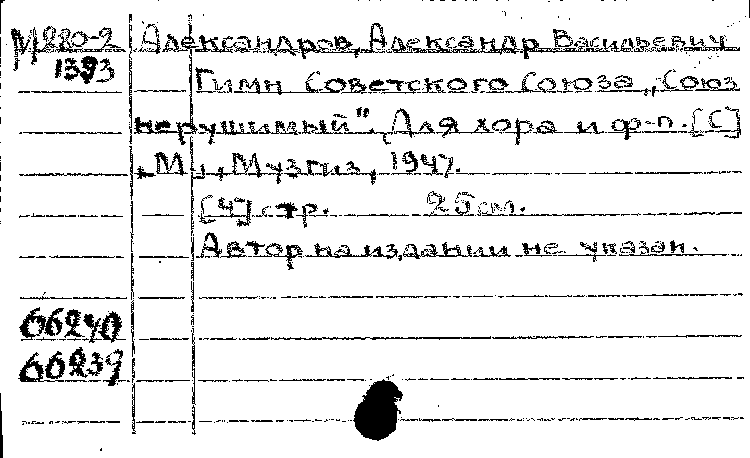 М 280-2 Александров, Александр Васильевич
1393 Гимн Советского Союза „Союз
нерушимый". Для хора и ф-п. [С]
„М.", Музгиз, 1947.
[4] стр. 25 см.
Автор на издании не указан.
66240
66239